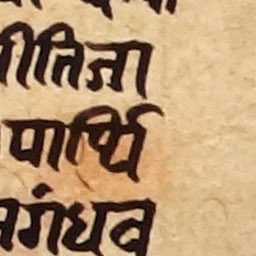 ीतिजा
पार्थि
गंधव